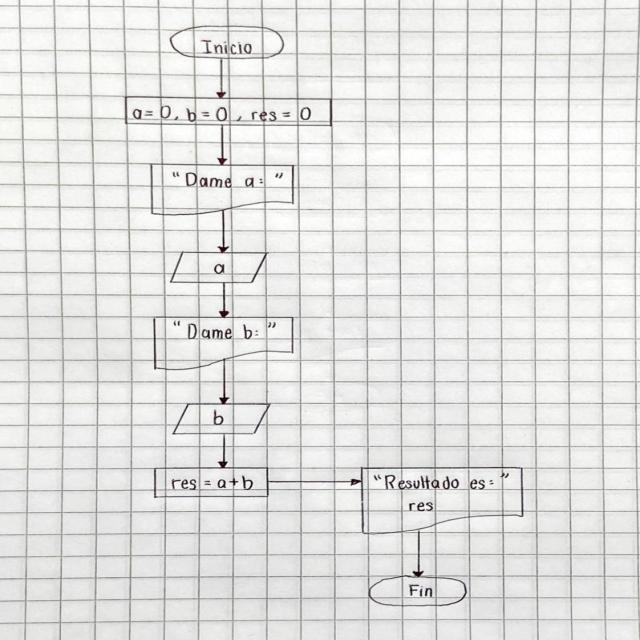 Inicio
a=0, b=0, res=0
"Dame a: "
a
"Dame b: "
b
res = a+b
"Resultado es: "
res
Fin